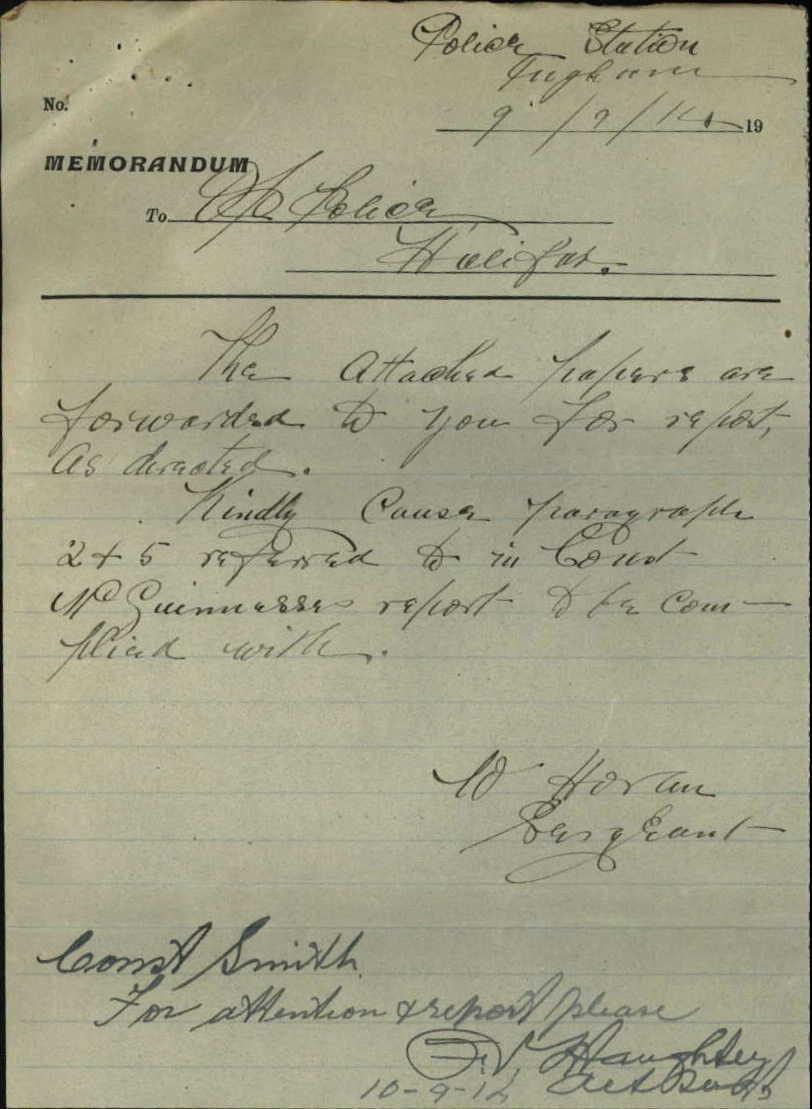 Police Station
Ingham
No.
9/9/14 19
MEMORANDUM
To O/C Police
Halifax.
The attached papers are
forwarded to you for report,
as directed.
Kindly cause paragraph
2 & 5 referred to in Const
McGuinnesses report to be com-
plied with.
W Horan
Sergeant
Const Smith.
For attention & report please
Haughtey
10-9-14 Act Sergt